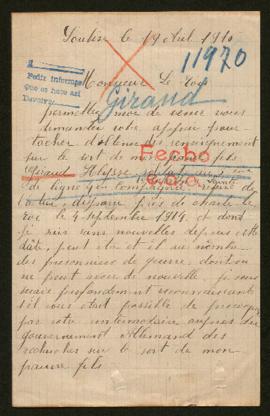 Loubin le 19 Aut 1910
11970
Monsieur Le Roy
Giraud
permettez moi de venir vous
demander votre appui pour
tacher d'obtenir des renseignement
sur le sort de mon fils
Fecho
Giraud
de ligne Compagnie
disparu près de charle
roi le 4 septembre 1914 et dont
je suis sans nouvelles depuis cette
date, peut etre et il au nombre
des prisonniers de guerre, dont on
ne peut avoir de nouvelle je vous
serais profondément reconnaissant
s'il vous etait possible de provoquer
par votre intermédiaire auprès du
gouvernement Allemand des
recherches sur le sort de mon
pauvre fils